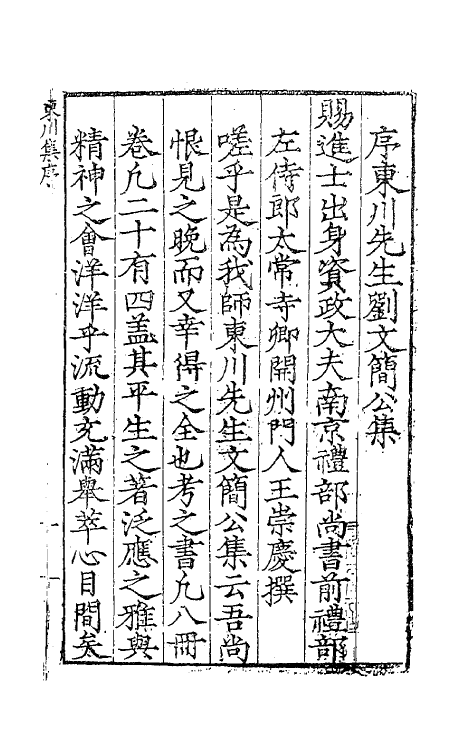 序東川先生劉文簡公集
賜進士出身資政大夫南京禮部尚書前禮部
左侍郎太常寺卿開州門人王崇慶撰
嗟乎是為我師東川先生文簡公集云吾尚
恨見之晚而又幸得之全也考之書凡八冊
卷凡二十有四盖其平生之著泛應之雅與
精神之會洋洋乎流動充滿舉萃心目間矣
東川集序